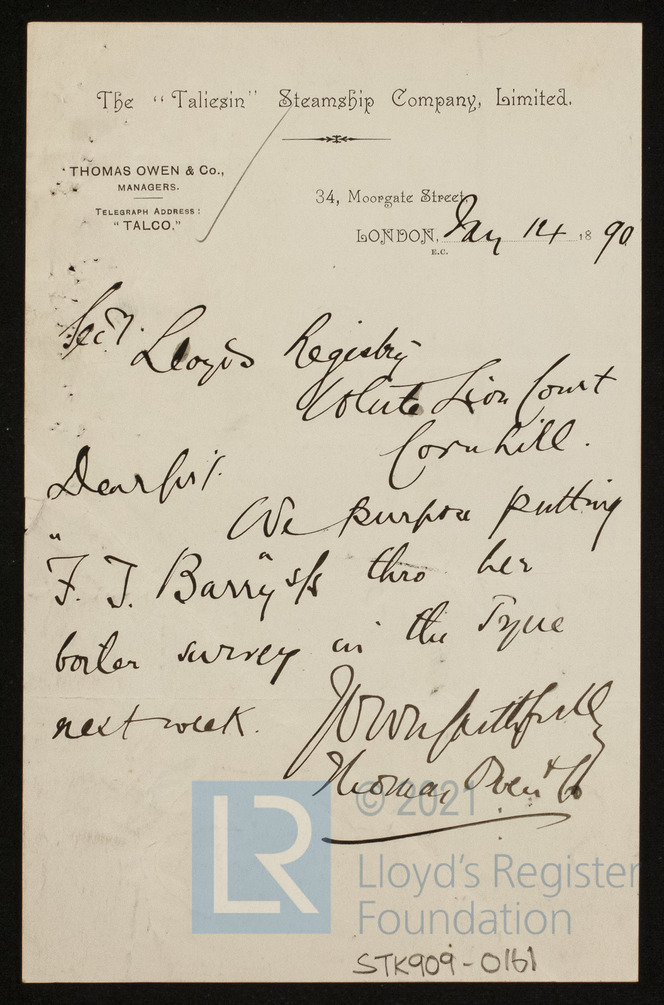 The "Taliesin" Steamship Company, Limited.
THOMAS OWEN & Co.,
MANAGERS.
TELEGRAPH ADDRESS:
"TALCO."
34, Moorgate Street,
LONDON, Jan 14 1890
E.C.
Secy.
Lloyds Registry
White Lion Court
Cornhill.
Dear Sir.
We purpose putting
"F. J. Barry" s/s thro her
boiler survey in the Tyne
next week.
Yours faithfully
Thomas Owen & Co
© 2021
LR
Lloyd's Register
Foundation
STK909-0161